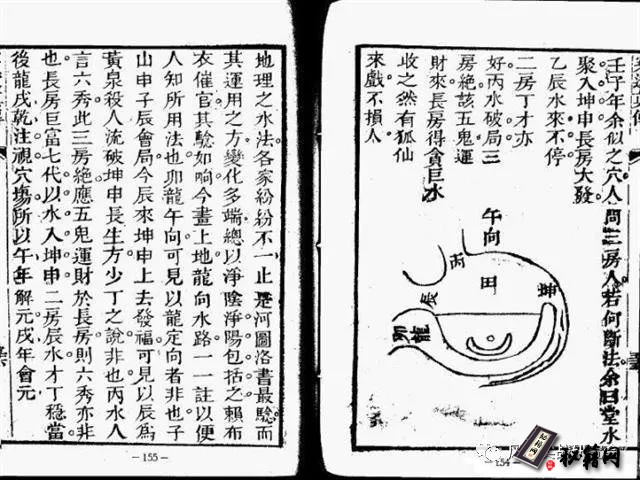 壬子年余似之穴人問三房人若何斷法余曰堂水
聚入坤申長房大發
乙辰水來不停
二房丁才亦
好丙水破局三
房絕該五鬼運
財來長房得貪巨水
收之然有狐仙
來戲不損人
午向
丙
田
坤
辰
卯龍
154
地理之水法各家紛紛不一止是河圖洛書最驗而
其運用之方變化多端總以淨陰淨陽包括之賴布
衣催官其驗如响今畫上地龍向水路一一註以便
人知所用法也卯龍午向可見以龍定向者非也子
山申子辰會局今辰來坤申上去發福可見以辰為
黃泉殺人流破坤申長生方少丁之說非也丙水人
言六秀此三房絕應五鬼運財於長房則六秀亦非
也長房巨富七代以水入坤申二房辰水才丁穩當
後龍戌乾注視穴塲所以午年解元戌年會元
- 155 -
秘籍网